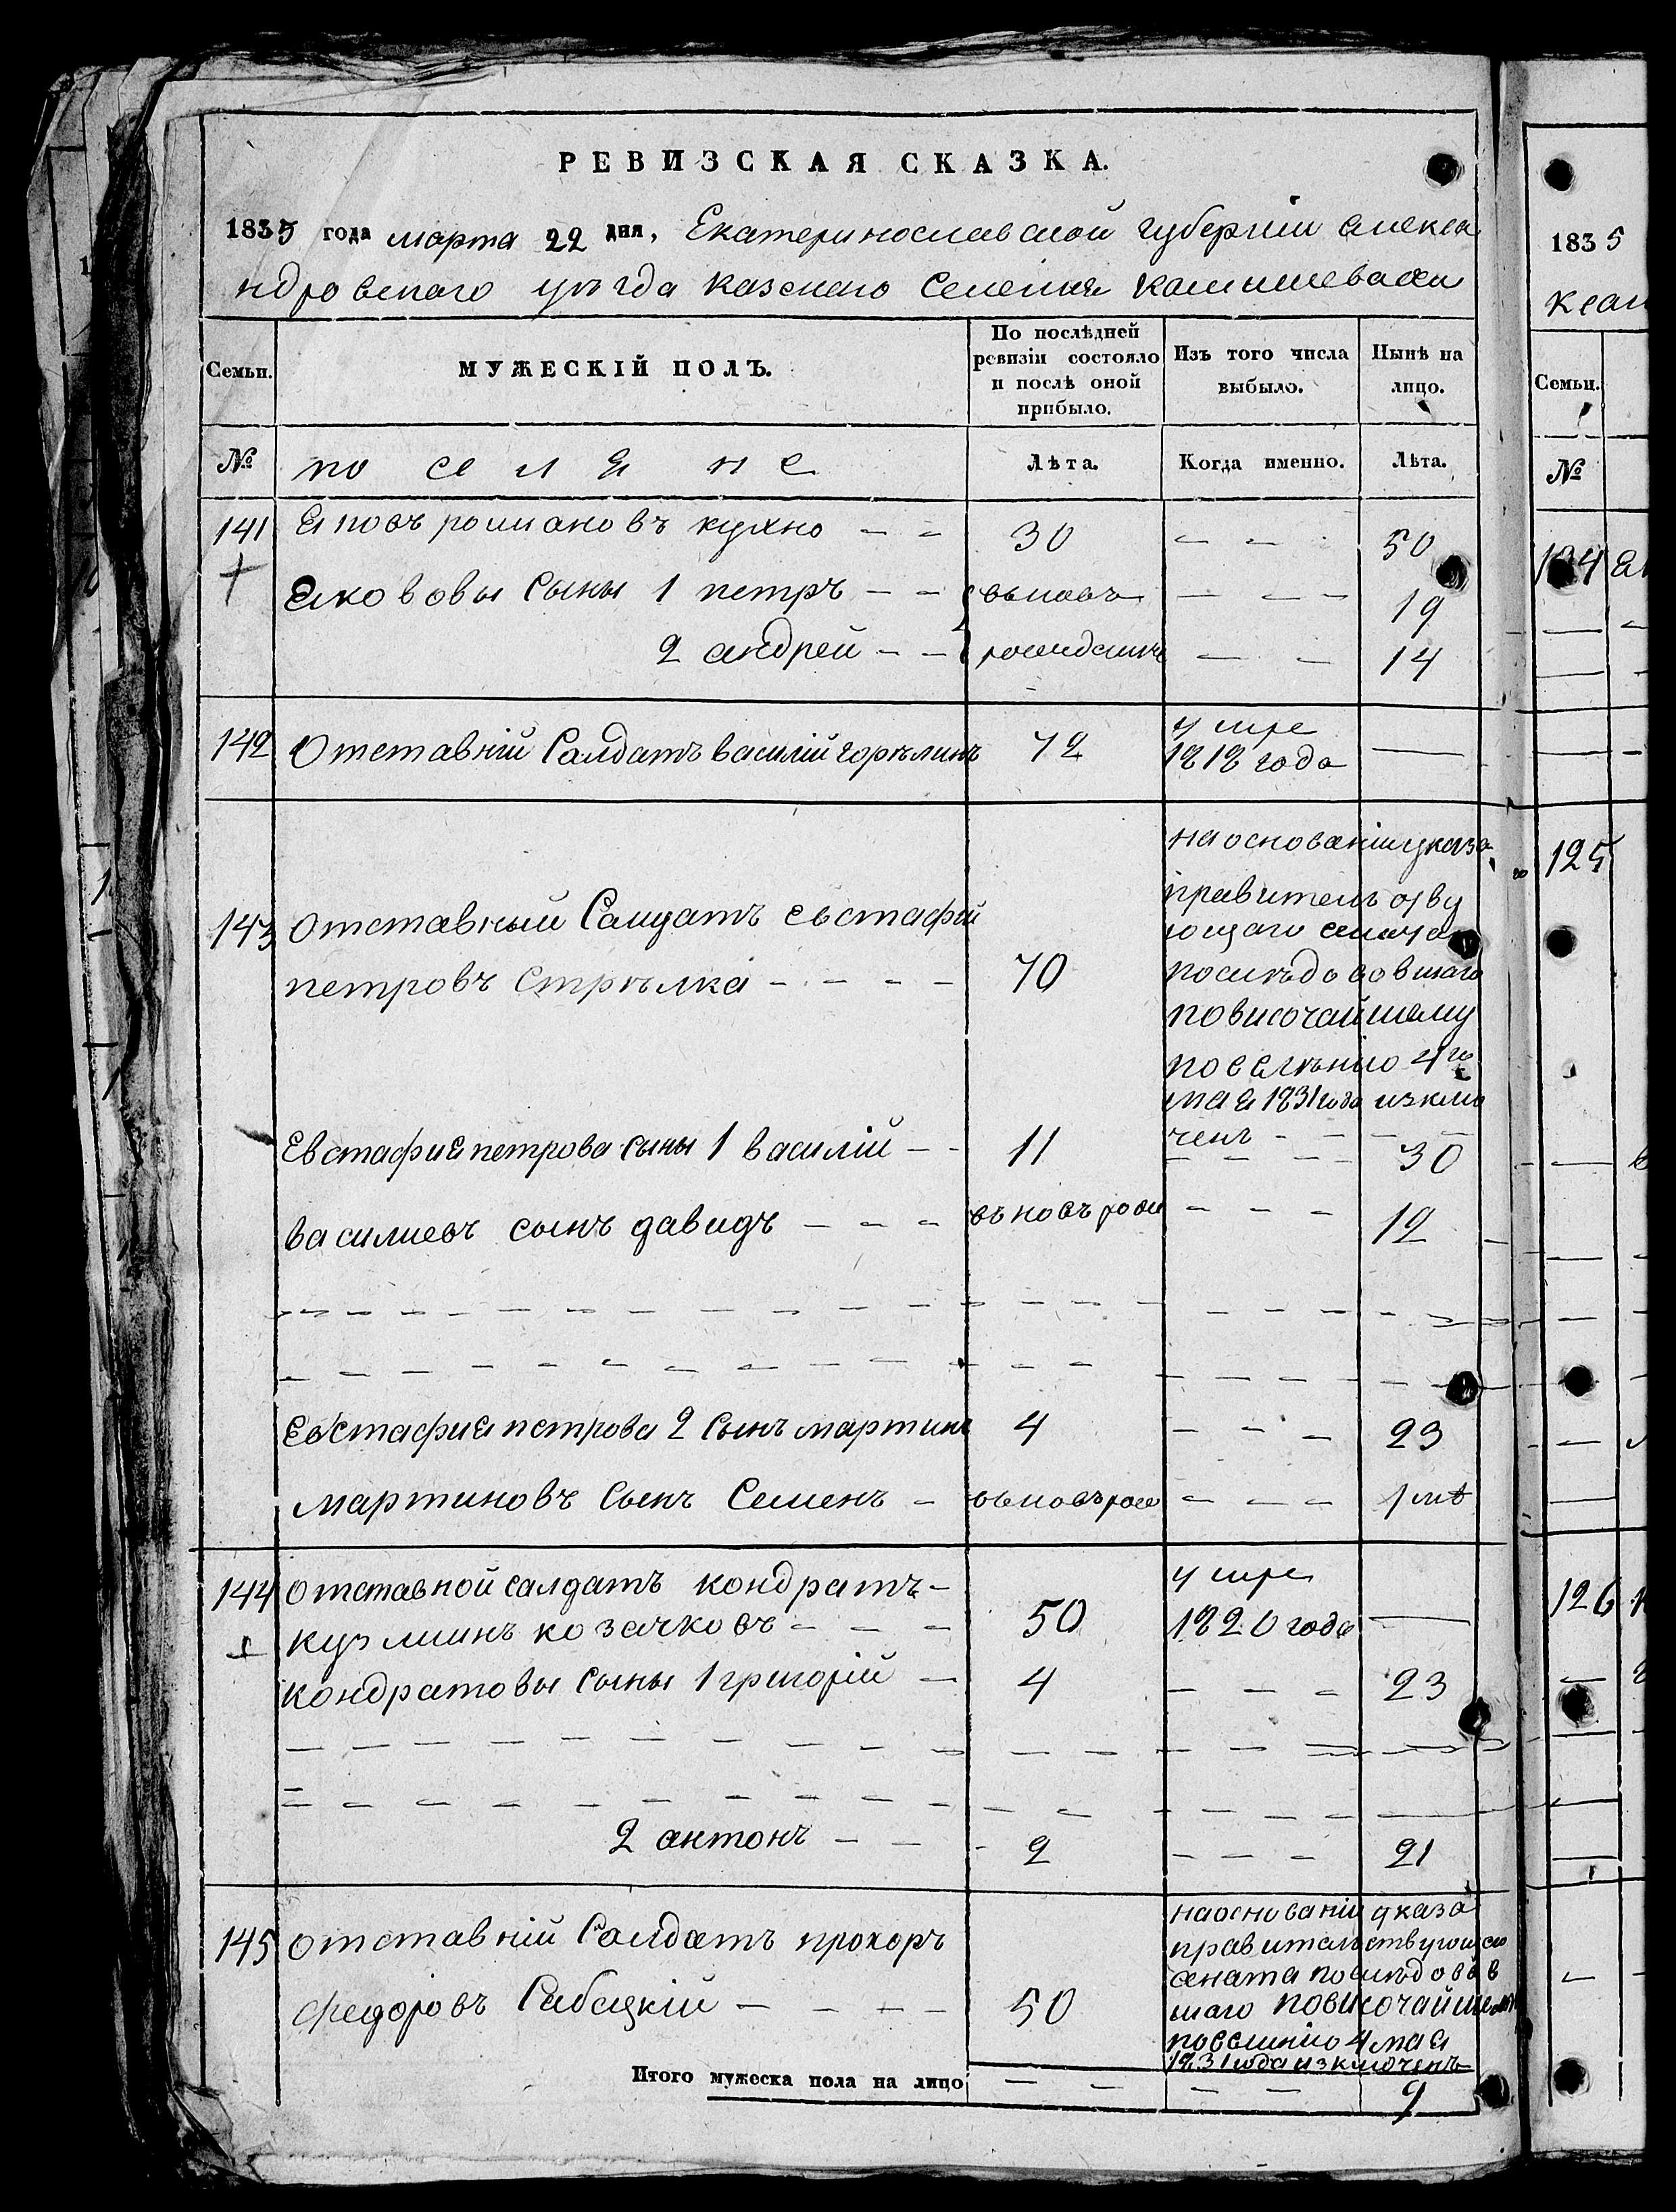 РЕВИЗСКАЯ СКАЗКА.
1835 года марта 22 дня, Екатеринославской губернии Алекса
ндровскаго уѣзда казенного Селения камишевахи
Семьи. МУЖЕСКІЙ ПОЛЪ. По послѣдней ревизіи состояло и послѣ оной прибыло. Изъ того числа выбыло. Нынѣ на лицо.
№ поселяне Лѣта. Когда именно. Лѣта.
141 Яковъ романовъ кухно - - 30 - - - 50
Яковови Сыны 1 петръ - - вьновь - - - 19
2 андрей - - рожденъ - - 14
142 Отставній Салдатъ василій горѣлинъ 72 умре 1818 года —
143 Отставный Салдатъ евстафій
петровъ Стрѣлка - - - - 70
на основаніи указа
правительству
ющаго сената
послѣдовавшаго
повисочайшему
повелѣнію 4го
мая 1831 года изклю
ченъ - - - -
Евстафия петрова сыны 1 василій - - 11 - - - - 30
василиевъ сынъ давидъ - - - вьновь рож - - - 12
Евстафия петрова 2 сынъ мартинъ 4 - - - 23
мартиновъ сынъ Семенъ - вьновь рож - - - 1 лѣ
144 отставной салдатъ кондратъ -
кузминъ козачковъ - - - 50 умре 1820 года —
кондратовы сыны 1 григорій - 4 - - - 23
2 антонъ - - - 2 - - - 21
145 отставній Салдатъ прохоръ
федоровъ Сабацкій - - - - 50
на основаніи указа
правительствующаго
сената послѣдовав
шаго повисочайшему
повелѣнію 4 мая
1831 года изключенъ
Итого мужеска пола на лицо - - - - 9
1835
Семьи.
№
124
125
126